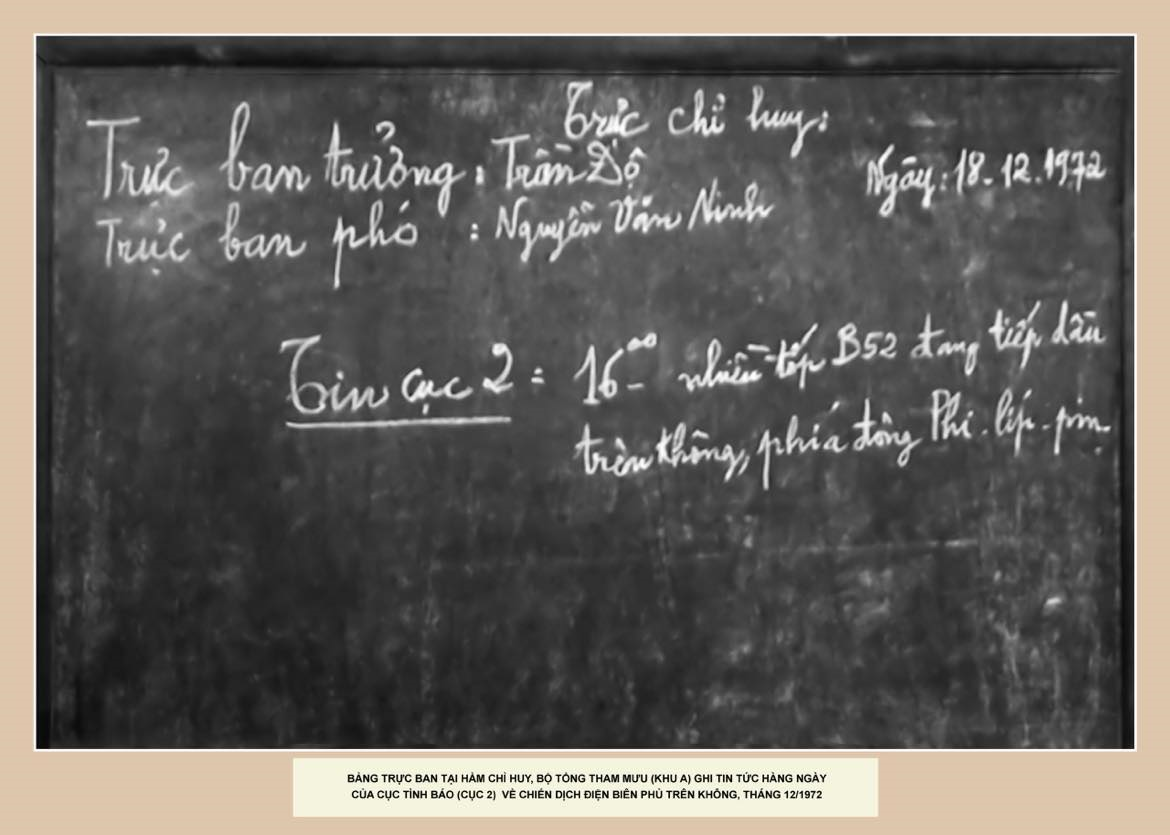 Trực chỉ huy:
Trực ban trưởng: Trần Độ
Ngày: 18.12.1972
Trực ban phó : Nguyễn Văn Ninh
Tin cục 2 = 16⁰⁰ nhiều tốp B52 đang tiếp dầu
trên không, phía đông Phi-líp-pin.
BẢNG TRỰC BAN TẠI HẦM CHỈ HUY, BỘ TỔNG THAM MƯU (KHU A) GHI TIN TỨC HÀNG NGÀY
CỦA CỤC TÌNH BÁO (CỤC 2) VỀ CHIẾN DỊCH ĐIỆN BIÊN PHỦ TRÊN KHÔNG, THÁNG 12/1972